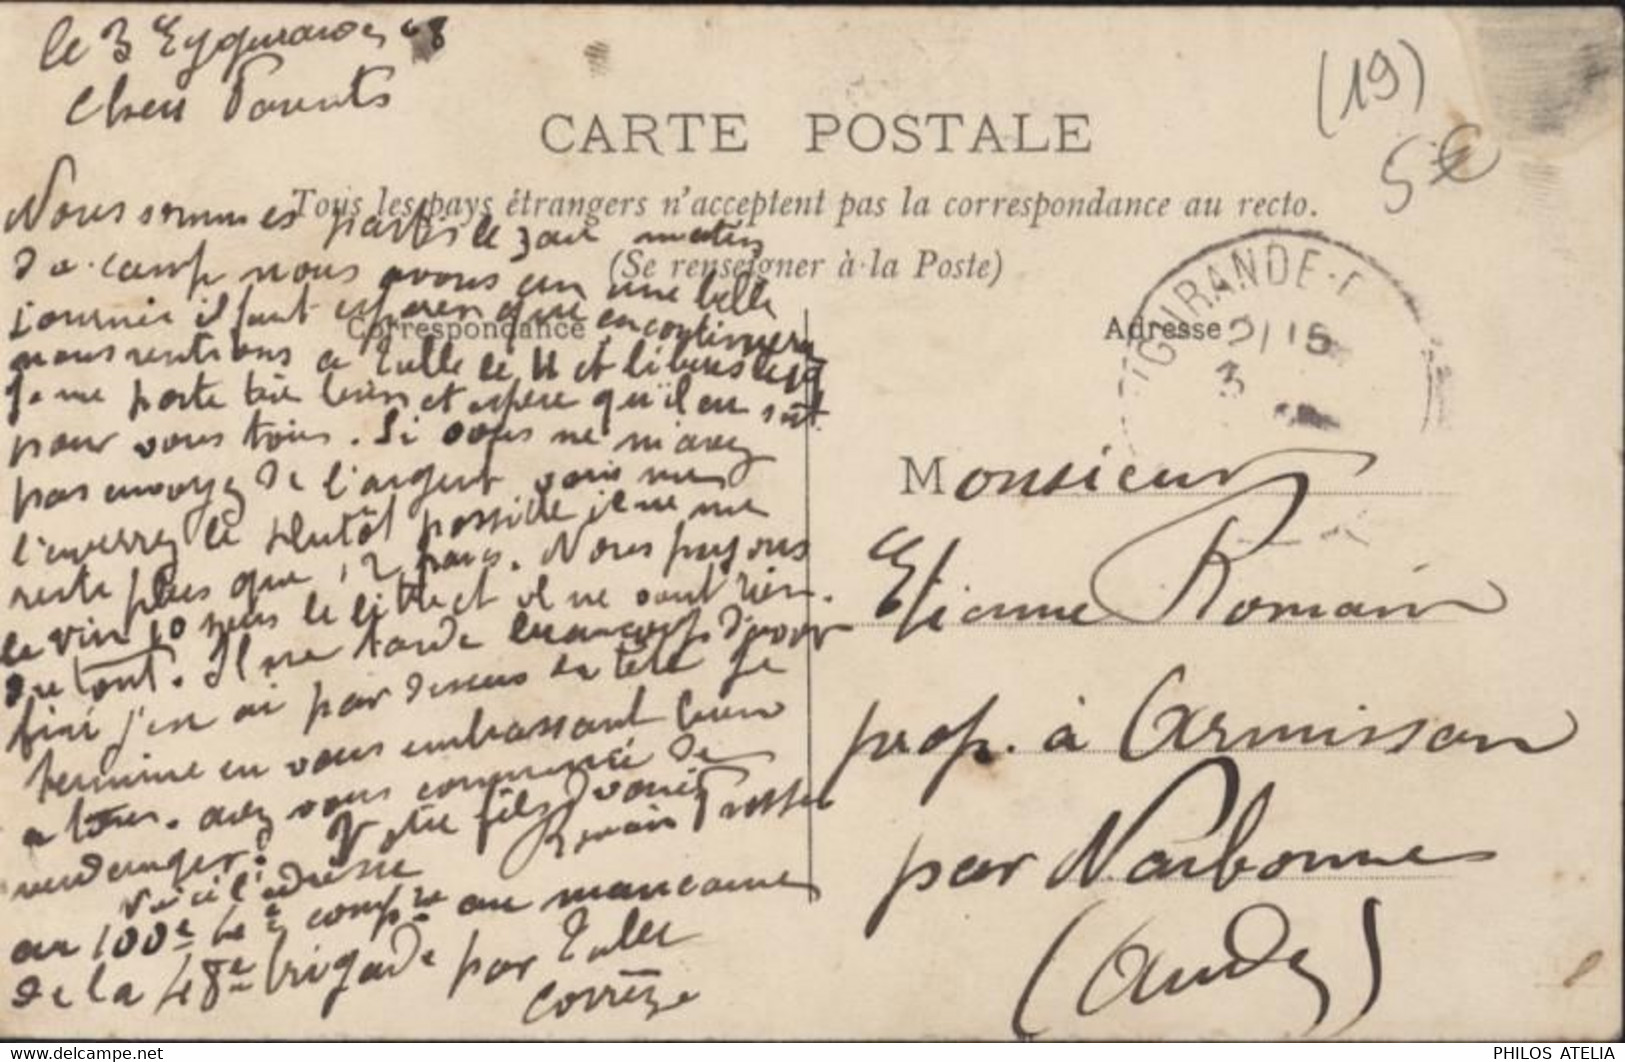 le 3 Eygurande 08
Chers Parents
(19)
5€
CARTE POSTALE
Tous les pays étrangers n'acceptent pas la correspondance au recto.
(Se renseigner à la Poste)
Correspondance
Adresse
Nous sommes partis le 3 au matin
du camp nous avons eu une belle
journée il faut esperer que ca continuera
nous rentrons a Tulle le 11 et libérés le 19
Je me porte très bien et espère qu'il en soit
pour vous tous. Si vous ne m'avez
pas envoyez de l'argent vous me
l'enverrez le plutôt possible il ne me
reste plus que 12 francs. Nous payons
le vin 10 sous le litre et il ne vaut rien
du tout. Il me tarde beaucoup d'avoir
fini j'en ai par dessus la tête Je
termine en vous embrassant bien
a tous. avez vous commencé de
vendanger? Votre fils dévoué
Romain
Voici l'adresse
au 100e 4e comp ie aux manœuvres
de la 48e brigade par Tulle
Corrèze
YGURANDE-
3
Monsieur
Etienne Romain
prop. à Armissan
par Narbonne
(Aude)
www.delcampe.net
PHILOS ATELIA